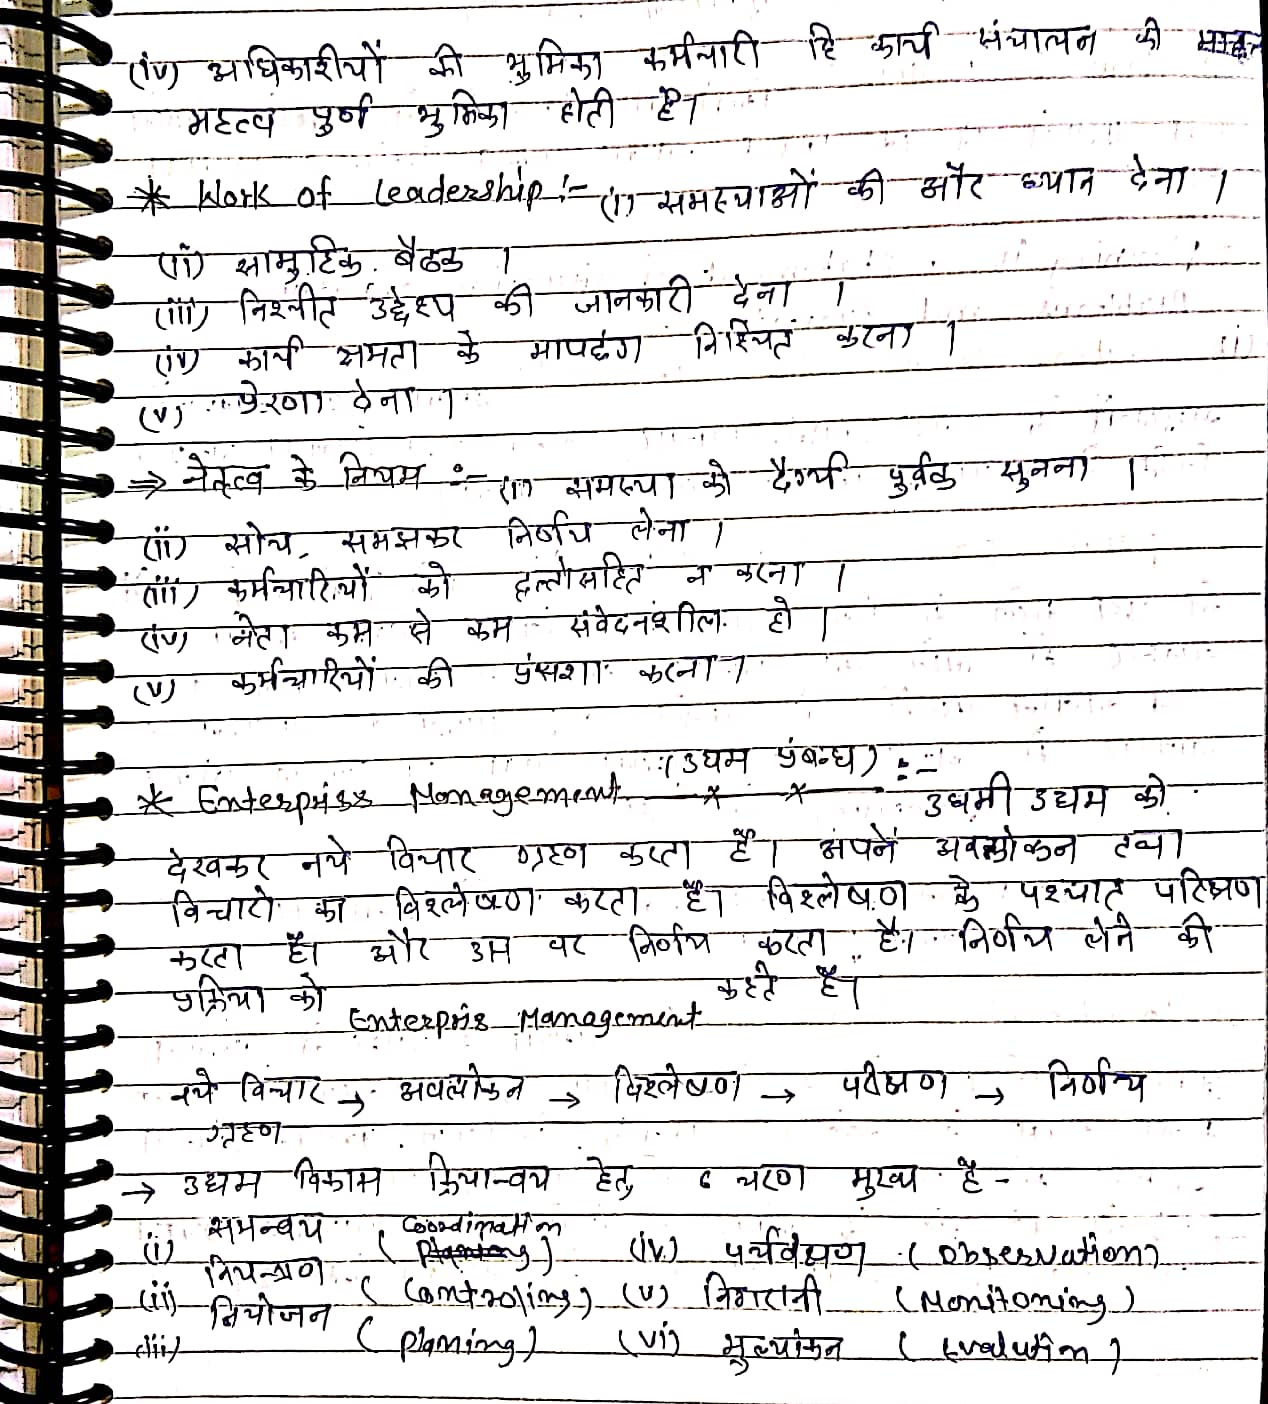 (iv) अधिकारीयों की भुमिका कर्मचारी हि कार्य संचालन की
महत्व पुर्ण भुमिका होती है।
* Work of Leadership :- (i) समस्याओं की और ध्यान देना ।
(ii) सामुहिक बैठक ।
(iii) निश्चीत उद्देश्य की जानकारी देना ।
(iv) कार्य क्षमता के मापदंण निश्चित करना ।
(v) प्रेरणा देना ।
⇒ नेतृत्व के नियम :- (i) समस्या को दैर्य्य पुर्वक सुनना ।
(ii) सोच, समझकर निर्णय लेना ।
(iii) कर्मचारियों को हल्तोसहित न करना ।
(iv) नेता कम से कम संवेदनशील हो ।
(v) कर्मचारियों की प्रंसशा करना ।
(उधम प्रंबन्ध) :-
* Enterpriss Management उधमी उधम को
देखकर नये विचार ग्रहण करता है। अपने अवलोकन तथा
विचारो का विश्लेषण करता है। विश्लेषण के पश्चात परिक्षण
करता है। और उस पर निर्णय करता है। निर्णय लेने की
प्रक्रिया को Enterpris Management कहते है।
नये विचार → अवलोकन → विश्लेषण → परीक्षण → निर्णय
ग्रहण
→ उधम विकास क्रियान्वय हेतु 6 चरण मुख्य है -
(i) समन्वय (Coordination Planning) (iv) पर्यवेक्षण (Observation)
(ii) नियन्त्रण (Controling) (v) निगरानी (Monitoring)
(iii) नियोजन (Planing) (vi) मुल्यांकन (Evalution)